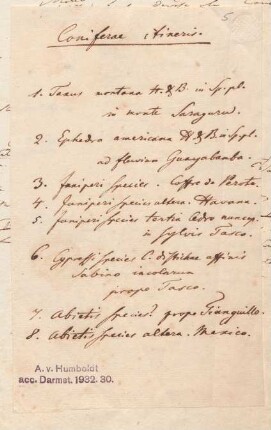 5
Coniferae itineris.
1. Taxus montana H.&B. in Sp. pl.
in monte Saragura.
2. Ephedra americana H.&B in Sp. pl.
ad fluvium Guayabamba.
3. Juniperi species. Coffre de Perote.
4. Juniperi species altera. Havana.
5 Juniperi species tertia Cedro
in sylvis Tasco.
6 Cypressi species C. distichae affinis
Sabino incolarum
prope Tasco.
7. Abietis species? prope Tianguillo.
8. Abietis species altera. Mexico.
A. v. Humboldt
acc. Darmst. 1932. 30.